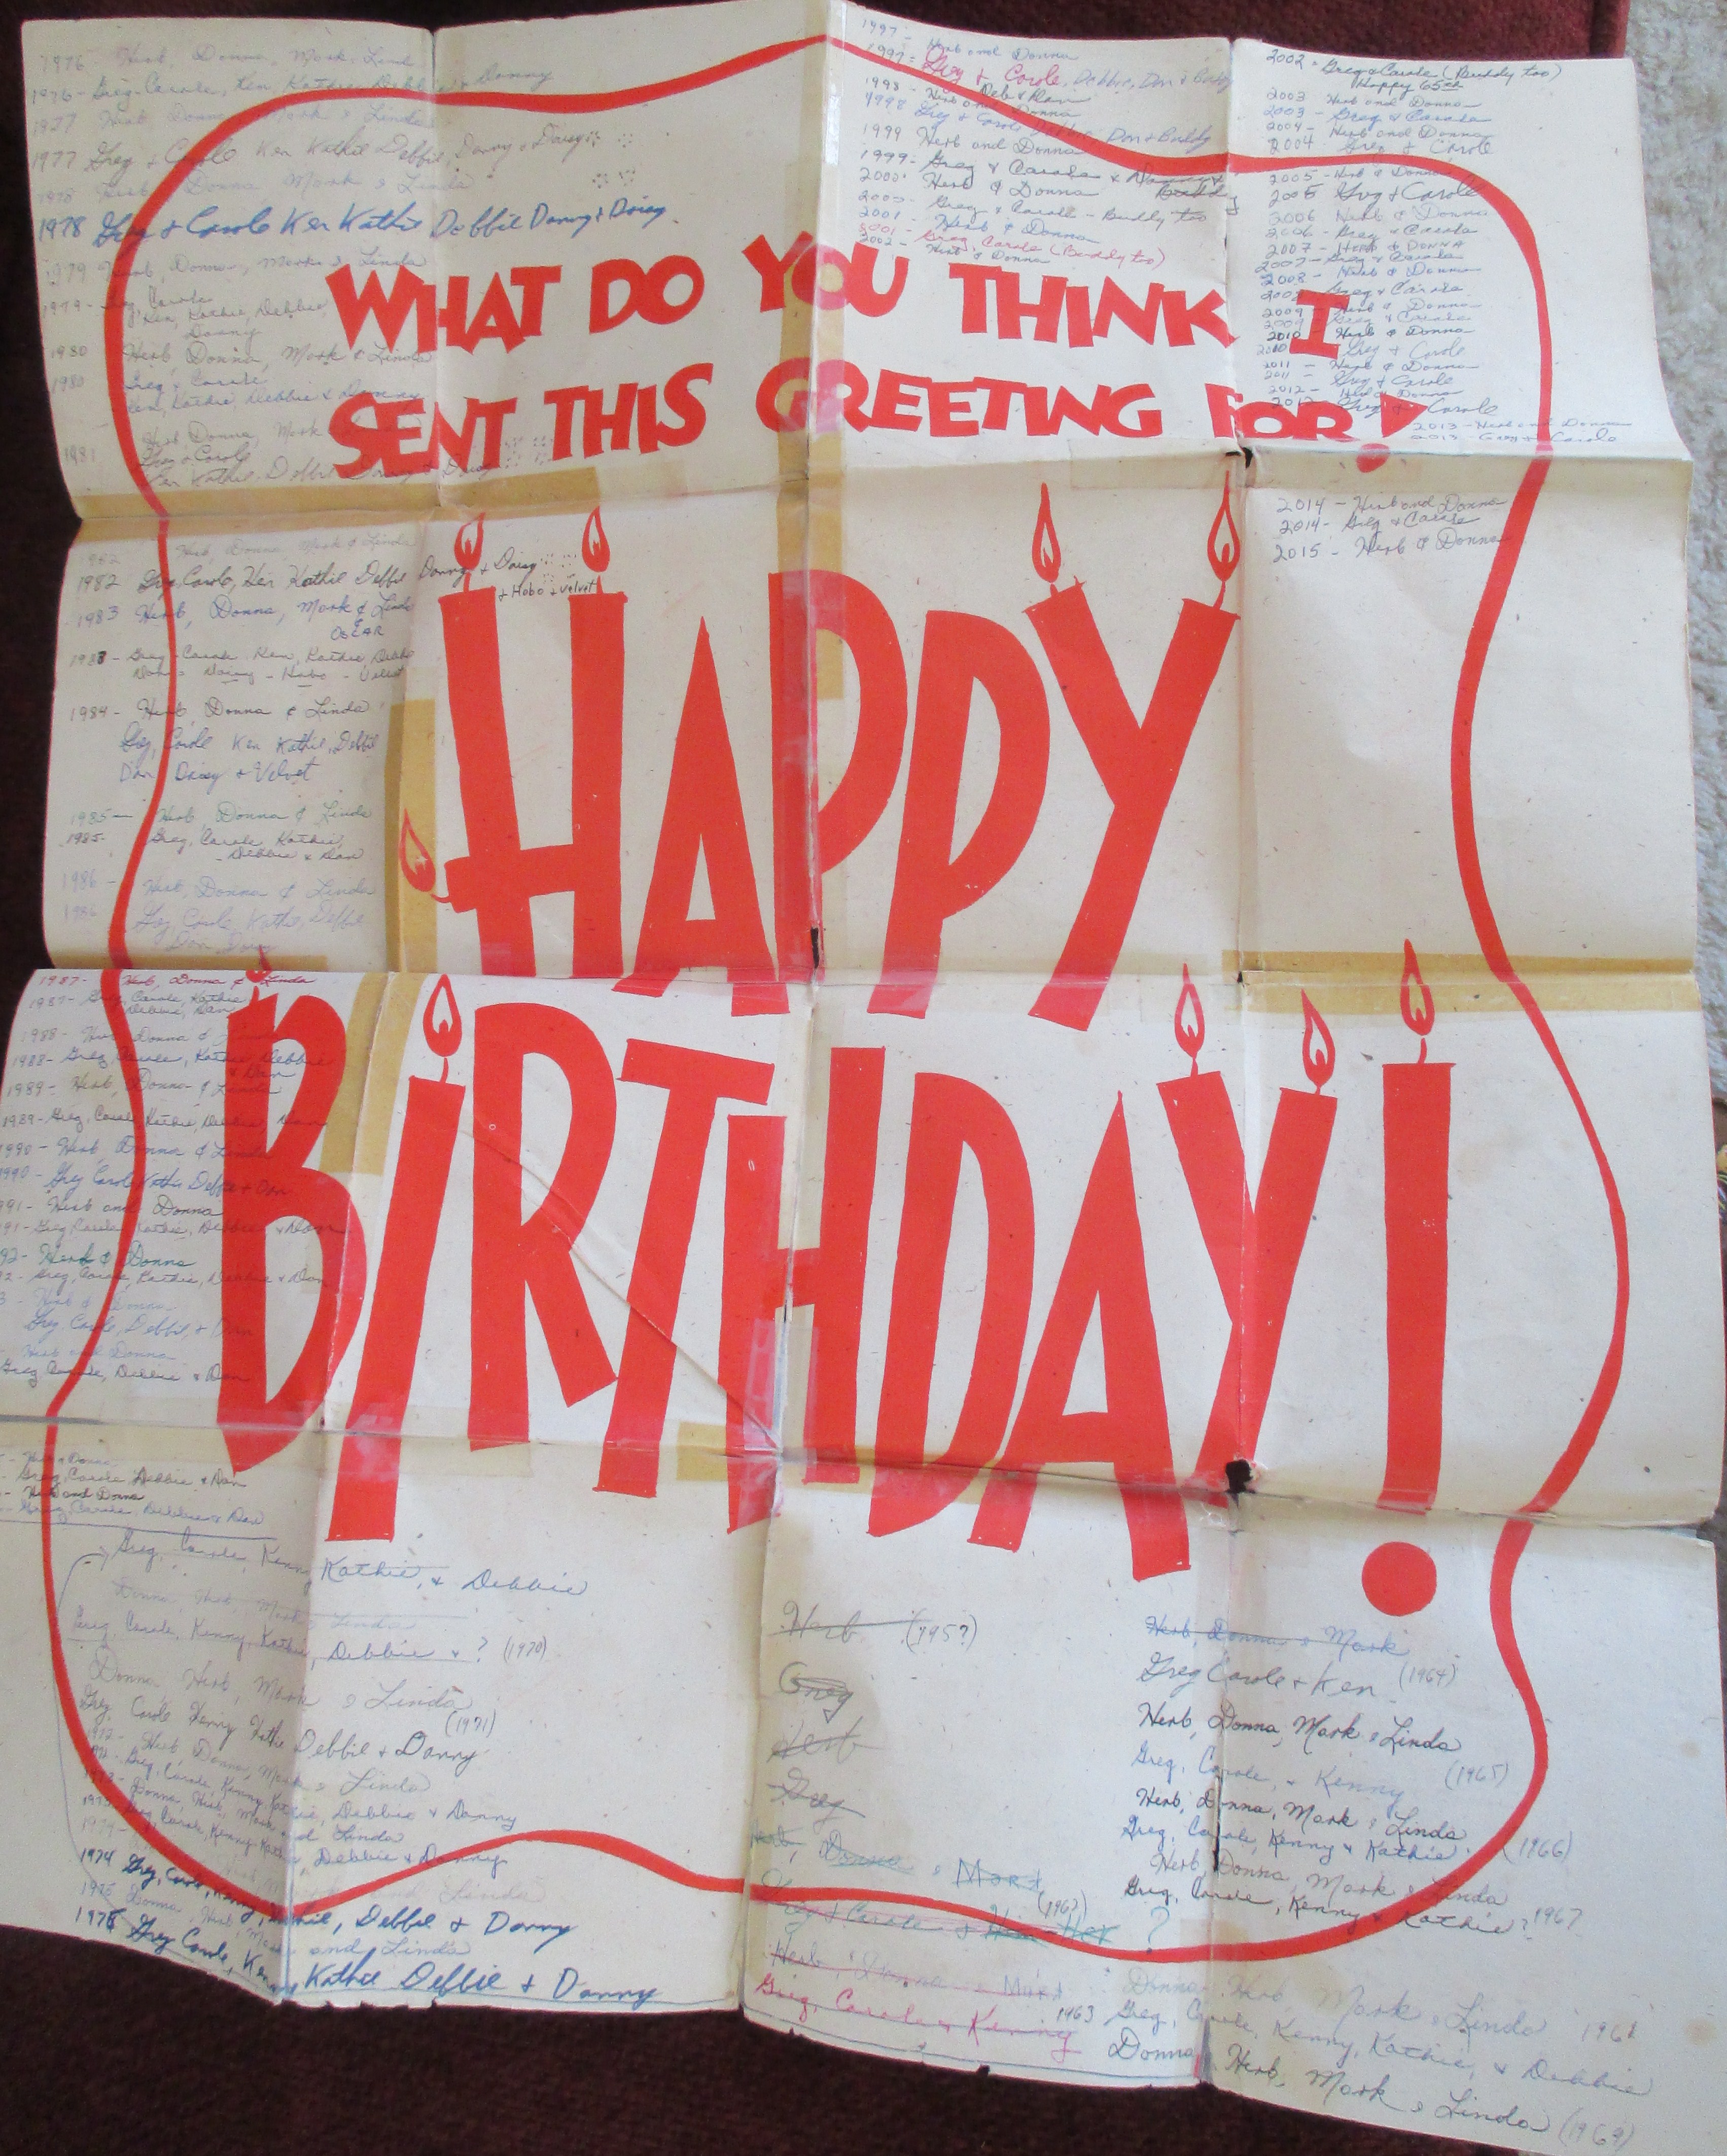 1976 - Herb, Donna, Mark, Linda
1976 - Greg - Carole, Ken, Kathie Debbie + Danny
1977 Herb Donna Mark & Linda
1977 Greg + Carole Ken Kathie Debbie, Danny + Daisy
1978 Herb Donna Mark & Linda
1978 Greg + Carole Ken Kathie Debbie Danny + Daisy.
1979 Herb, Donna, Mark & Linda
1979 - Greg, Carole
Ken, Kathie, Debbie,
Danny
1980 Herb Donna, Mark & Linda
1980 Greg + Carole
Ken, Kathie Debbie & Danny
Herb Donna, Mark
1981 Greg + Carole
Ken Kathie Debbie Danny + Daisy
1997 - Herb and Donna
1997 - Greg & Carole, Debbie, Dan & Buddy
Deb & Dan
1998 - Herb and Donna
1998 Greg & Carole Debbie Dan & Buddy
1999 Herb and Donna
1999 - Greg & Carole &
Buddy
2000 - Herb & Donna
2000 - Greg & Carole - Buddy too
2001 - Herb & Donna
2001 - Greg, Carole (Buddy too)
2002 - Herb & Donna
2002 - Greg & Carole (Buddy too)
Happy 65th
2003 Herb and Donna
2003 - Greg & Carole
2004 - Herb and Donna
2004 Greg & Carole
2005 - Herb & Donna
2005 Greg & Carole
2006 Herb & Donna
2006 - Greg & Carole
2007 - Herb & DONNA
2007 - Greg & Carole
2008 - Herb & Donna
2008 Greg & Carole
2009 - Herb & Donna
2009 Greg & Carole
2010 Herb & Donna
2010 Greg & Carole
2011 - Herb & Donna
2011 - Greg & Carole
2012 - Herb & Donna
2012 - Greg & Carole
2013 - Herb and Donna
2013 - Greg & Carole
WHAT DO YOU THINK I
SENT THIS GREETING FOR?
2014 - Herb and Donna
2014 - Greg & Carole
2015 - Herb & Donna
1982 Herb, Donna, Mark & Linda
1982 Greg Carole, Ken Kathie Debbie Danny + Daisy
+ Hobo + Velvet
1983 Herb, Donna, Mark & Linda
& OSCAR
1983 - Greg - Carole Ken, Kathie, Debbie
Daisy - Hobo - Velvet
1984 - Herb, Donna & Linda
Greg, Carole Ken Kathie, Debbie
Dan Daisy + Velvet
1985 - Herb Donna & Linda
1985 - Greg, Carole, Kathie,
Debbie & Dan
1986 - Herb, Donna & Linda
1986 Greg, Carole, Kathie, Debbie
Dan Daisy
HAPPY
BIRTHDAY!
1987 - Herb, Donna & Linda
1987 - Greg, Carole, Kathie
Debbie, Dan
1988 - Herb Donna &
1988 - Greg, Carole, Kathie, Debbie
& Dan
1989 - Herb, Donna & Linda
1989 - Greg, Carole, Kathie, Debbie, Dan
1990 - Herb, Donna & Linda
1990 - Greg Carole Kathie Debbie + Dan
991 - Herb and Donna
91 - Greg, Carole, Kathie, Debbie & Dan
92 - Herb & Donna
2 - Greg, Carole, Kathie, Debbie & Dan
3 - Herb & Donna
Greg Carole, Debbie, + Dan
- Herb and Donna
Greg Carole, Debbie & Dan
- Herb & Donna
- Greg, Carole Debbie & Dan
- Herb and Donna
- Greg, Carole, Debbie & Dan
Greg, Carole, Kenny Kathie, & Debbie
Donna, Herb, Mark & Linda
Greg, Carole, Kenny, Kathie, Debbie & ? (1970)
Donna Herb, Mark & Linda
Greg, Carole Kenny Kathie Debbie + Danny (1971)
1972 - Herb, Donna, Mark & Linda
Greg, Carole, Kenny Kathie, Debbie & Danny
1973 - Donna, Herb, Mark and Linda
Greg, Carole, Kenny Kathie, Debbie & Danny
1974 - and Linda
1974 Greg, Carole, Kenny, Kathie, Debbie & Danny
1975 Donna, Herb, Mark and Linda
1975 Greg Carole, Kenny Kathie Debbie + Danny
Herb (195?)
Greg
Herb
Greg
Herb, Donna & Mark
Greg & Carole & Him - Her ? (1962)
Herb, Donna & Mark
Greg, Carole & Kenny 1963
Herb, Donna & Mark
Greg Carole + Ken (1964)
Herb, Donna, Mark & Linda
Greg, Carole, & Kenny (1965)
Herb, Donna, Mark & Linda
Greg, Carole, Kenny & Kathie. (1966)
Herb, Donna, Mark & Linda
Greg, Carole, Kenny & Kathie? 1967
Donna, Herb, Mark & Linda 1968
Greg, Carole, Kenny, Kathie, & Debbie
Donna Herb, Mark & Linda (1969)